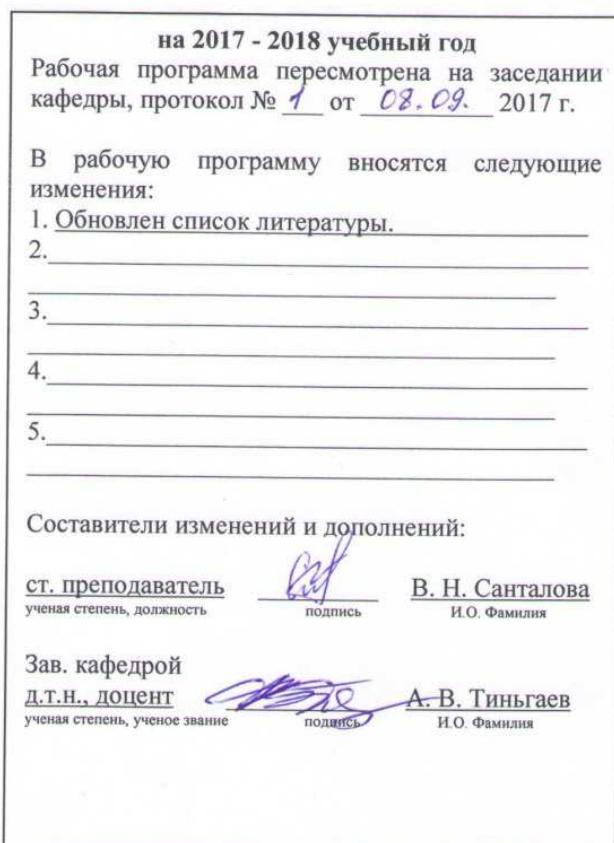 на 2017 - 2018 учебный год
Рабочая программа пересмотрена на заседании
кафедры, протокол № 1 от 08.09. 2017 г.
В рабочую программу вносятся следующие
изменения:
1. Обновлен список литературы.
2.
3.
4.
5.
Составители изменений и дополнений:
ст. преподаватель В. Н. Санталова
ученая степень, должность подпись И.О. Фамилия
Зав. кафедрой
д.т.н., доцент А. В. Тиньгаев
ученая степень, ученое звание подпись И.О. Фамилия